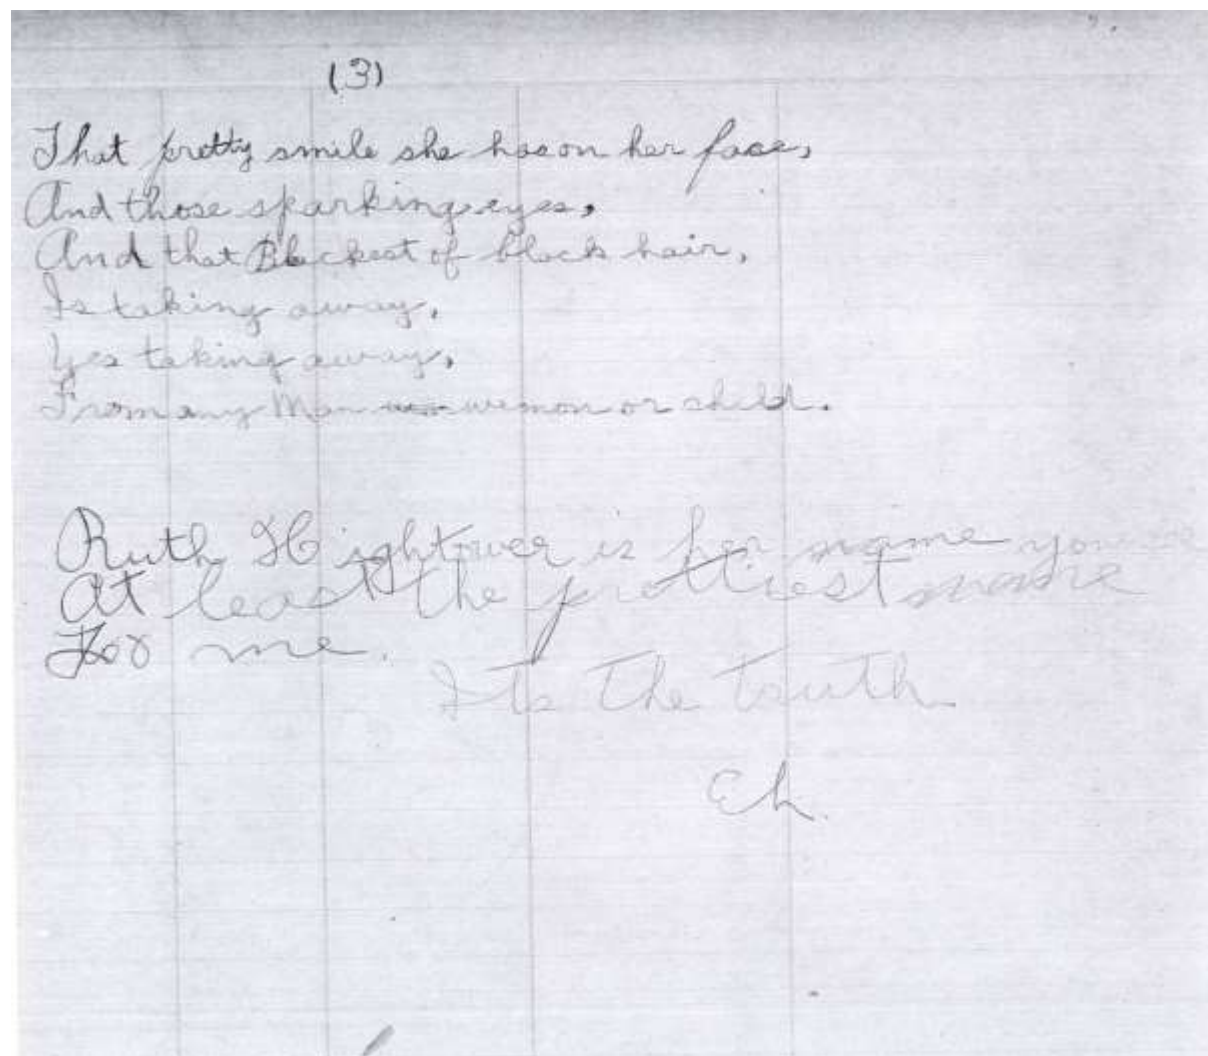 (3)
That pretty smile she has on her face,
And those sparking eyes,
And that Blackest of black hair,
Is taking away,
Yes taking away,
From any Man wemon or child.
Ruth Hightower is her name you see
At least the prettiest name
For me.
Its the truth
Eh.